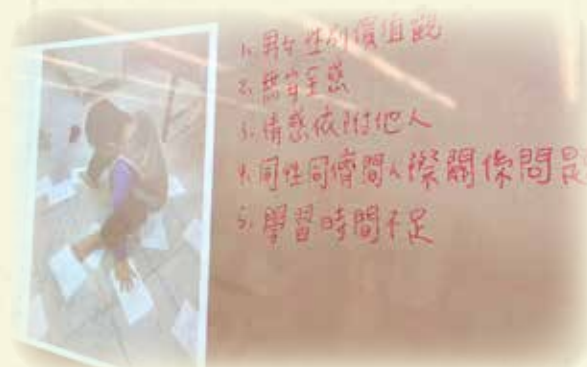 1. 男女性別價值觀
2. 無安全感
3. 情感依附他人
4. 同性同儕間人際關係問是
5. 學習時間不足